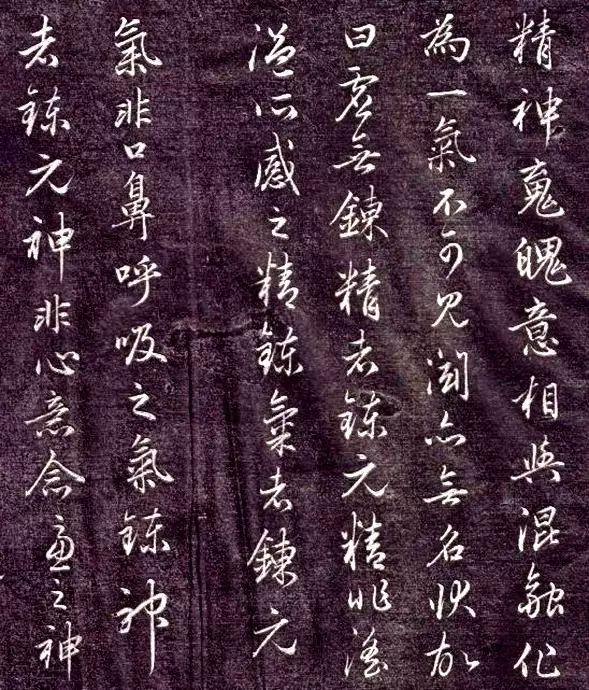 精神魂魄意相與混融化
為一氣不可見聞亦無名狀故
曰虛無鍊精者鍊元精非淫
溢所感之精鍊氣者鍊元
氣非口鼻呼吸之氣鍊神
者鍊元神非心意念慮之神